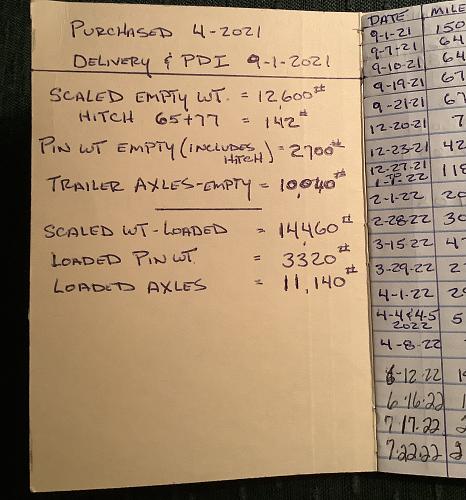 PURCHASED 4-2021
DELIVERY & PDI 9-1-2021
SCALED EMPTY WT. = 12,600#
HITCH 65+77 = 142#
PIN WT EMPTY (INCLUDES HITCH) = 2700#
TRAILER AXLES-EMPTY = 10,040#
SCALED WT-LOADED = 14,460#
LOADED PIN WT = 3320#
LOADED AXLES = 11,140#
DATE MILE
9-1-21 150
9-7-21 64
9-10-21 64
9-19-21 67
9-21-21 67
12-20-21 7
12-23-21 42
12-27-21 118
1-7-22
2-1-22 20
2-28-22 30
3-15-22 4
3-29-22 2
4-1-22 20
4-4&4-5 5
2022
4-8-22
6-12-22 1
6-16-22 1
7-17-22 2
7-22-22 2